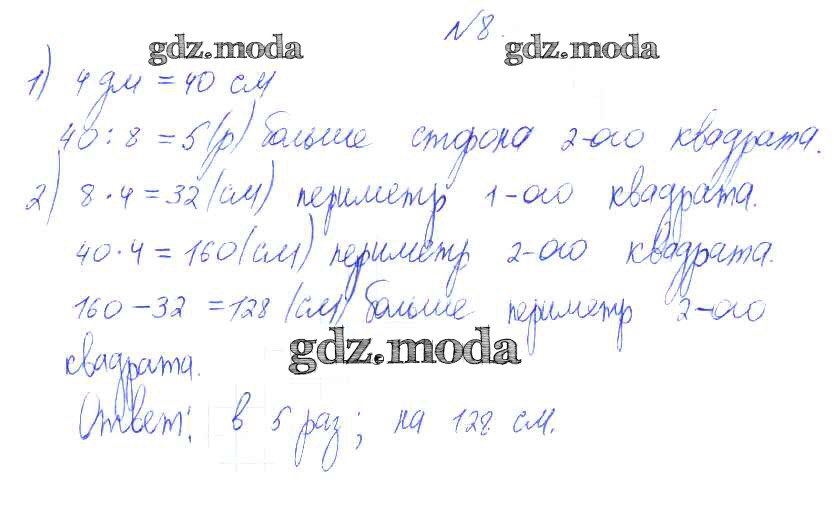 №8.
gdz.moda gdz.moda
1) 4 дм = 40 см
40 : 8 = 5 (р) больше сторона 2-ого квадрата.
2) 8 · 4 = 32 (см) периметр 1-ого квадрата.
40 · 4 = 160 (см) периметр 2-ого квадрата.
160 - 32 = 128 (см) больше периметр 2-ого
квадрата.
gdz.moda
Ответ: в 5 раз; на 128 см.